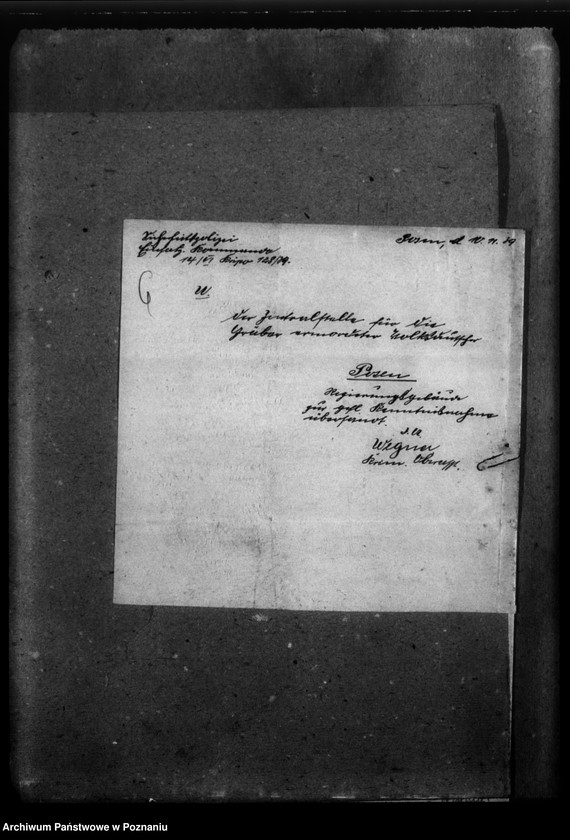 Sicherheitspolizei
Einsatz Kommando
14/VI Kripo 128/39.
Posen, d. 10. 11. 39
U.
der Zentralstelle für die
Gräber ermordeter Volksdeutscher
Posen
Regierungsgebäude
zur gefl. Kenntnisnahme
übersandt.
I.A.
Wegner
Krim. Oberass.
Archiwum Państwowe w Poznaniu